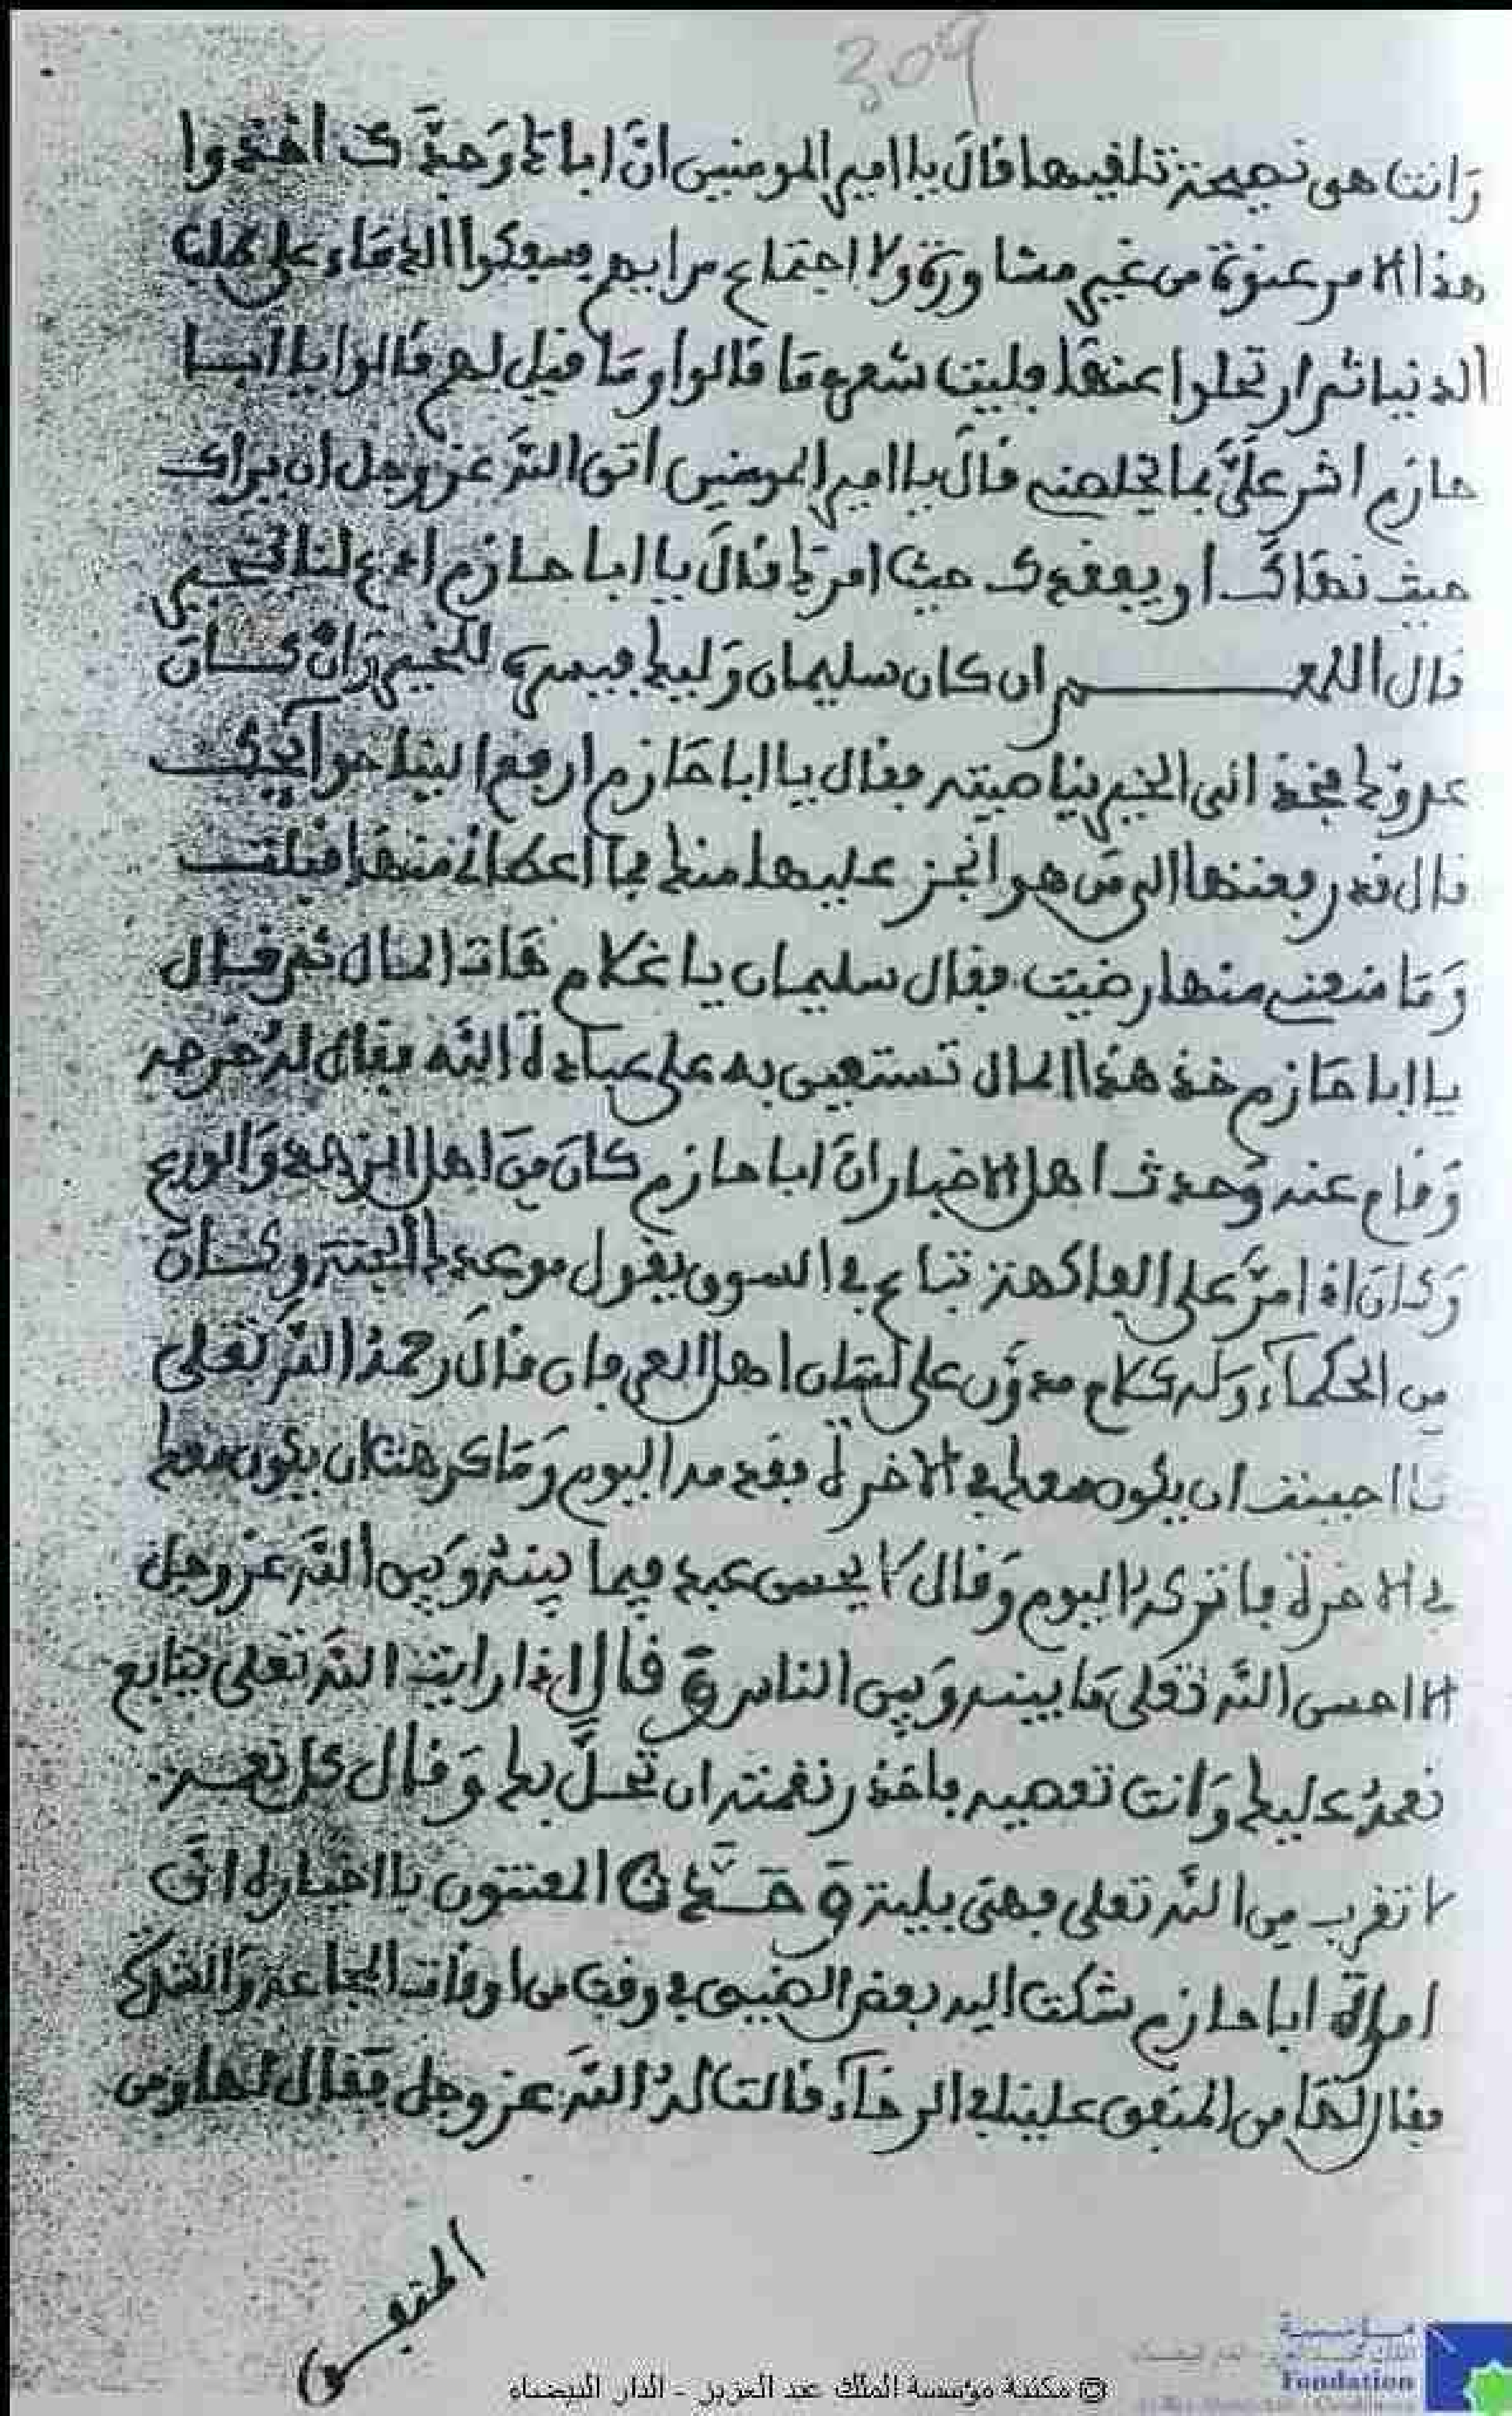 309
وانت هى نصيحة تلفيها قال يا امير المومنين ان اباءك وجدك اخذوا
هذا الامر عنوة من غير مشاورة ولا اجتماع من ايهم فسبكوا الدماء على طلب
الدنيا ثم ارتحلوا عنها فليت شعرى ما قالوا وما قيل لهم قالوا يا ابا
حازم اشر علي بما يخلصنى قال يا امير المومنين اتق الله عز وجل ان يراك
حيث نهاك او يفقدك حيث امرك قال يا ابا حازم ادع لنا بخير
قال اللهم ان كان سليمان وليك فيسره للخير وان كان
عدوك فخذ الى الخير بناصيته فقال يا ابا حازم ارفع الينا حوائجك
قال قد رفعتها الى من هو انجز عليها منك فما اعطانى منها قبلت
وما منعنى منها رضيت فقال سليمان يا غلام هات المال ثم قال
يا ابا حازم خذ هذا المال تستعين به على عبادة الله فقال له
وقام عنه وحدث اهل الاخبار ان ابا حازم كان من اهل الزهد والورع
وكان اذا مر على الفاكهة تباع فى السوق يقول موعدك الجنة وكان
من الحكماء وله كلام مدون على لسان اهل العرفان قال رحمه الله تعلى
ما احببت ان يكون معك فى الاخرة فقدمه اليوم وما كرهت ان يكون معك
فى الاخرة فاتركه اليوم وقال لا يحسن عبد فيما بينه وبين الله عز وجل
الا احسن الله تعلى ما بينه وبين الناس وقال اذا رايت الله تعلى يتابع
نعمه عليك وانت تعصيه فاحذر نقمته ان تحل بك وقال كل نعمة
لا تقرب من الله تعلى فهى بلية وحدث المعتنون باخباره ان
امراة ابا حازم شكت اليه بعض الضيق فى وقت من اوقات المجاعة
فقال لها من المنفق علينا فى الرخاء قالت له الله عز وجل فقال لها ومن
المنفق
© مكتبة مؤسسة الملك عبد العزيز - الدار البيضاء
مؤسسة
Fondation